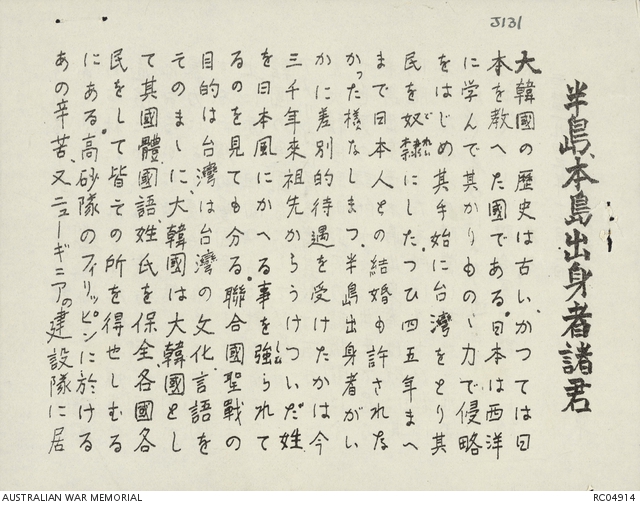 J131
半島、本島出身者諸君
大韓國の歴史は古いがつては日
本を教へた國である。日本は西洋
に学んで其かりものゝ力で侵略
をはじめ其手始に台湾をとり其
民を奴隷にしたつひ四五年まへ
まで日本人との結婚も許されな
かった様なしまつ、半島出身者がい
かに差別的待遇を受けたかは今
三千年來祖先からうけついだ姓
を日本風にかへる事を強られて
るのを見ても分る。聯合國聖戰の
目的は台湾は台湾の文化言語を
そのまゝに大韓國は大韓國とし
て其國體國語姓氏を保全各國各
民をして皆その所を得せしむる
にある。高砂隊のフィリッピンに於ける
あの辛苦、又ニューギニアの建設隊に居
AUSTRALIAN WAR MEMORIAL
RC04914